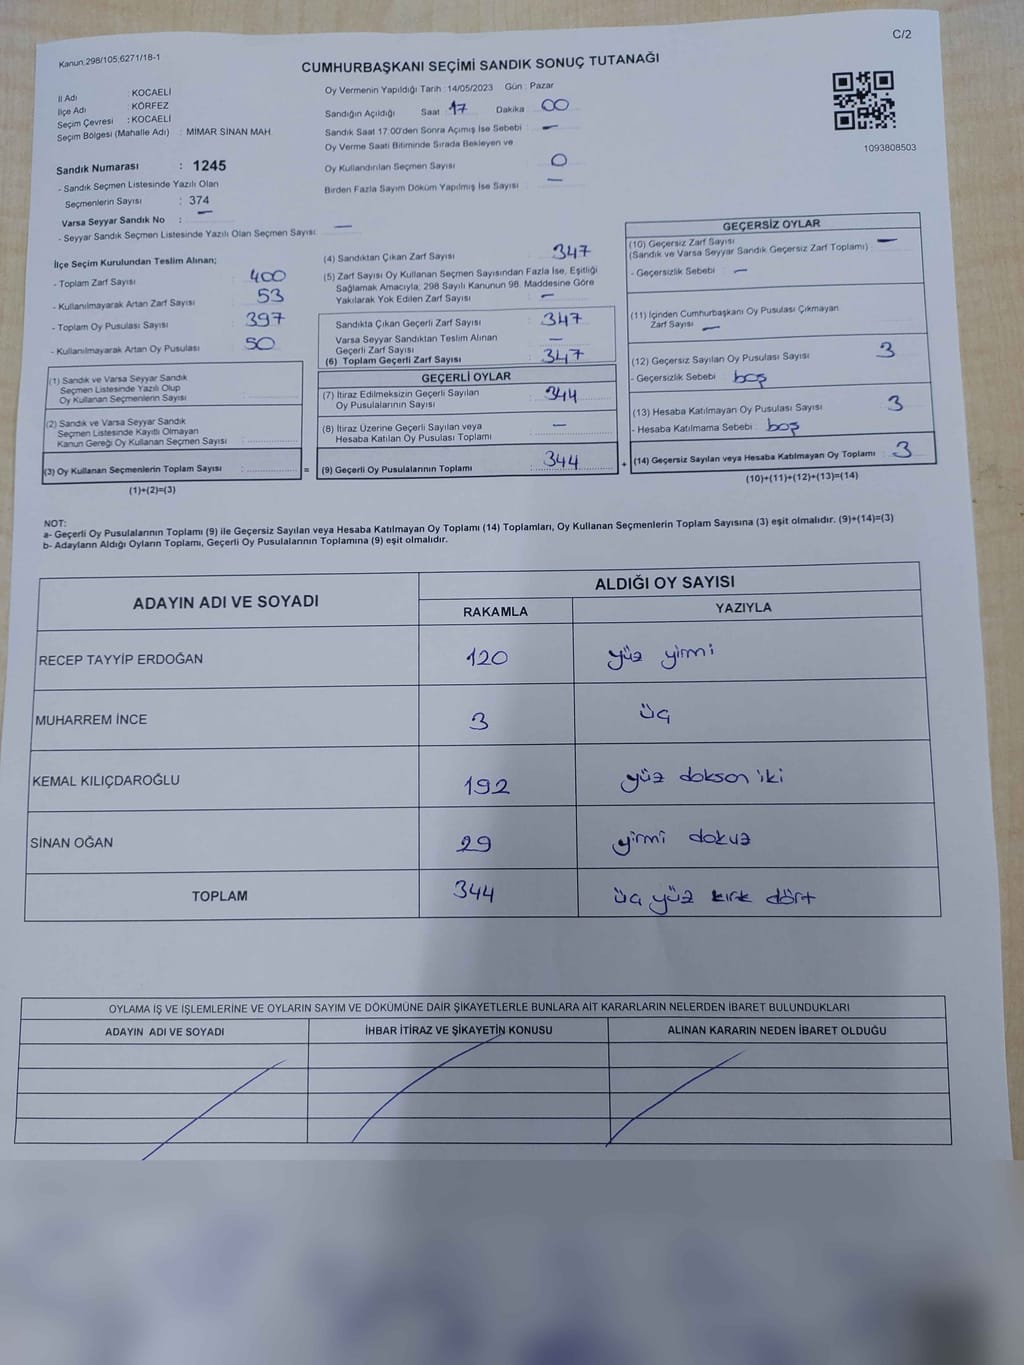 C/2
Kanun 298/105;6271/18-1
CUMHURBAŞKANI SEÇİMİ SANDIK SONUÇ TUTANAĞI
İl Adı : KOCAELİ
İlçe Adı : KÖRFEZ
Seçim Çevresi : KOCAELİ
Seçim Bölgesi (Mahalle Adı) : MİMAR SİNAN MAH.
Oy Vermenin Yapıldığı Tarih : 14/05/2023 Gün : Pazar
Sandığın Açıldığı Saat 17 Dakika 00
Sandık Saat 17:00'den Sonra Açımış İse Sebebi : —
Oy Verme Saati Bitiminde Sırada Bekleyen ve
Oy Kullandırılan Seçmen Sayısı : 0
Birden Fazla Sayım Döküm Yapılmış İse Sayısı : —
1093808503
Sandık Numarası : 1245
- Sandık Seçmen Listesinde Yazılı Olan
Seçmenlerin Sayısı : 374
Varsa Seyyar Sandık No : —
- Seyyar Sandık Seçmen Listesinde Yazılı Olan Seçmen Sayısı: —
İlçe Seçim Kurulundan Teslim Alınan;
- Toplam Zarf Sayısı : 400
- Kullanılmayarak Artan Zarf Sayısı : 53
- Toplam Oy Pusulası Sayısı : 397
- Kullanılmayarak Artan Oy Pusulası : 50
(1) Sandık ve Varsa Seyyar Sandık
Seçmen Listesinde Yazılı Olup
Oy Kullanan Seçmenlerin Sayısı :
(2) Sandık ve Varsa Seyyar Sandık
Seçmen Listesinde Kayıtlı Olmayan
Kanun Gereği Oy Kullanan Seçmen Sayısı :
(3) Oy Kullanan Seçmenlerin Toplam Sayısı : =
(1)+(2)=(3)
(4) Sandıktan Çıkan Zarf Sayısı : 347
(5) Zarf Sayısı Oy Kullanan Seçmen Sayısından Fazla İse, Eşitliği
Sağlamak Amacıyla, 298 Sayılı Kanunun 98. Maddesine Göre
Yakılarak Yok Edilen Zarf Sayısı : —
Sandıkta Çıkan Geçerli Zarf Sayısı : 347
Varsa Seyyar Sandıktan Teslim Alınan
Geçerli Zarf Sayısı : —
(6) Toplam Geçerli Zarf Sayısı : 347
GEÇERLİ OYLAR
(7) İtiraz Edilmeksizin Geçerli Sayılan
Oy Pusulalarının Sayısı : 344
(8) İtiraz Üzerine Geçerli Sayılan veya
Hesaba Katılan Oy Pusulası Toplamı : —
(9) Geçerli Oy Pusulalarının Toplamı : 344 +
GEÇERSİZ OYLAR
(10) Geçersiz Zarf Sayısı : —
(Sandık ve Varsa Seyyar Sandık Geçersiz Zarf Toplamı)
- Geçersizlik Sebebi : —
(11) İçinden Cumhurbaşkanı Oy Pusulası Çıkmayan
Zarf Sayısı : —
(12) Geçersiz Sayılan Oy Pusulası Sayısı : 3
- Geçersizlik Sebebi : boş
(13) Hesaba Katılmayan Oy Pusulası Sayısı : 3
- Hesaba Katılmama Sebebi : boş
(14) Geçersiz Sayılan veya Hesaba Katılmayan Oy Toplamı : 3
(10)+(11)+(12)+(13)=(14)
NOT:
a- Geçerli Oy Pusulalarının Toplamı (9) ile Geçersiz Sayılan veya Hesaba Katılmayan Oy Toplamı (14) Toplamları, Oy Kullanan Seçmenlerin Toplam Sayısına (3) eşit olmalıdır. (9)+(14)=(3)
b- Adayların Aldığı Oyların Toplamı, Geçerli Oy Pusulalarının Toplamına (9) eşit olmalıdır.
ADAYIN ADI VE SOYADI
ALDIĞI OY SAYISI
RAKAMLA YAZIYLA
RECEP TAYYİP ERDOĞAN 120 yüz yirmi
MUHARREM İNCE 3 üç
KEMAL KILIÇDAROĞLU 192 yüz doksan iki
SİNAN OĞAN 29 yirmi dokuz
TOPLAM 344 üç yüz kırk dört
OYLAMA İŞ VE İŞLEMLERİNE VE OYLARIN SAYIM VE DÖKÜMÜNE DAİR ŞİKAYETLERLE BUNLARA AİT KARARLARIN NELERDEN İBARET BULUNDUKLARI
ADAYIN ADI VE SOYADI İHBAR İTİRAZ VE ŞİKAYETİN KONUSU ALINAN KARARIN NEDEN İBARET OLDUĞU